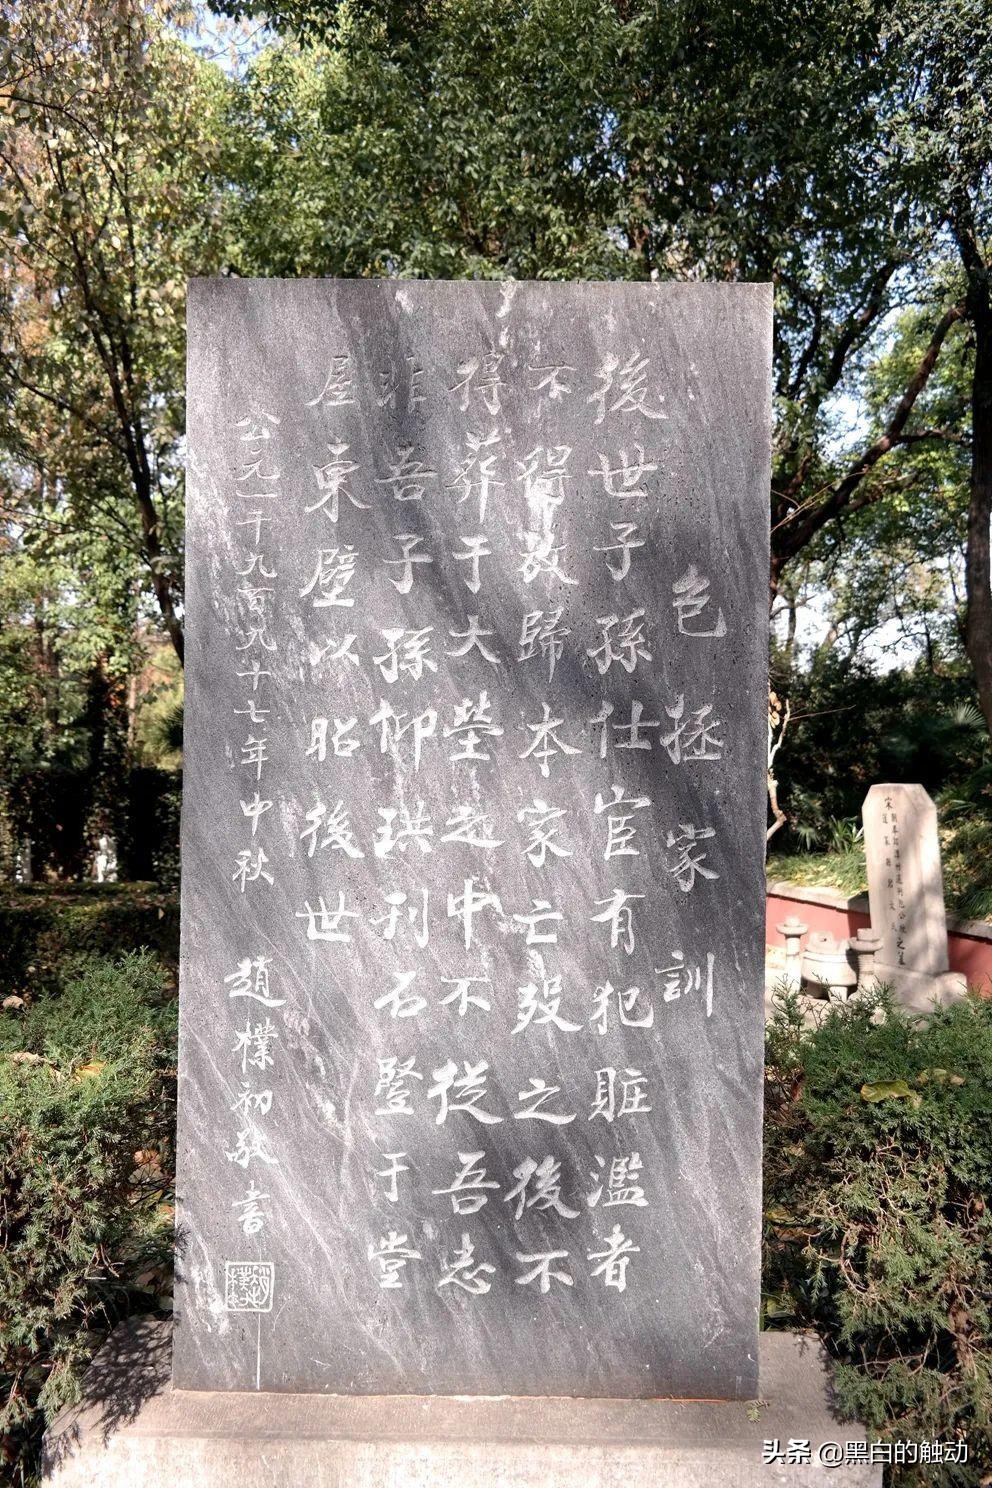 包拯家訓
後世子孫仕宦有犯賍濫者
不得放歸本家亡殁之後不
得葬于大塋之中不從吾志
非吾子孫仰珙刊石竪于堂
屋東壁以昭後世
公元一千九百九十七年中秋 趙樸初敬書
头条 @黑白的触动